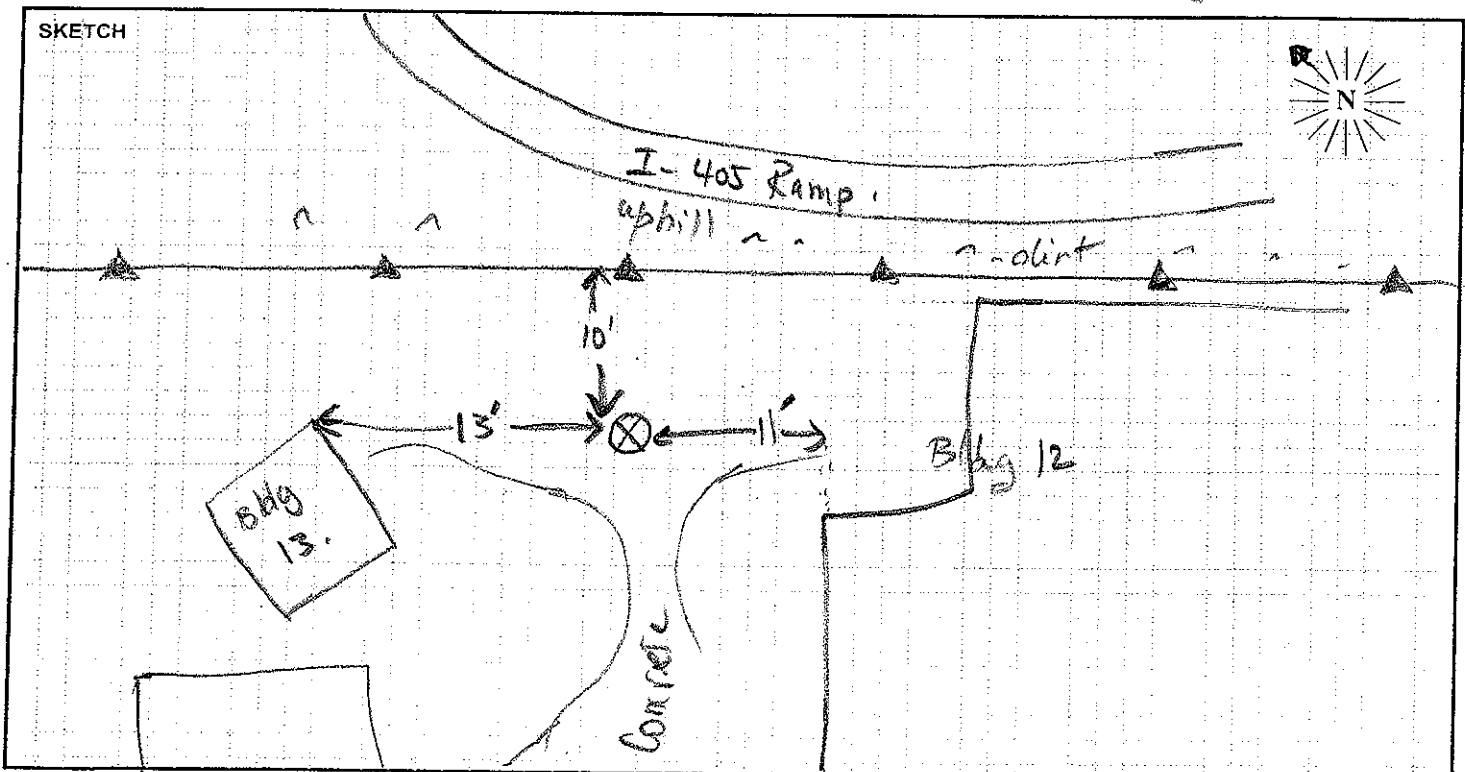 SKETCH
N
I-405 Ramp.
uphill
dirt
10'
13'
11'
Bldg 12
Bldg
13.
Concrete